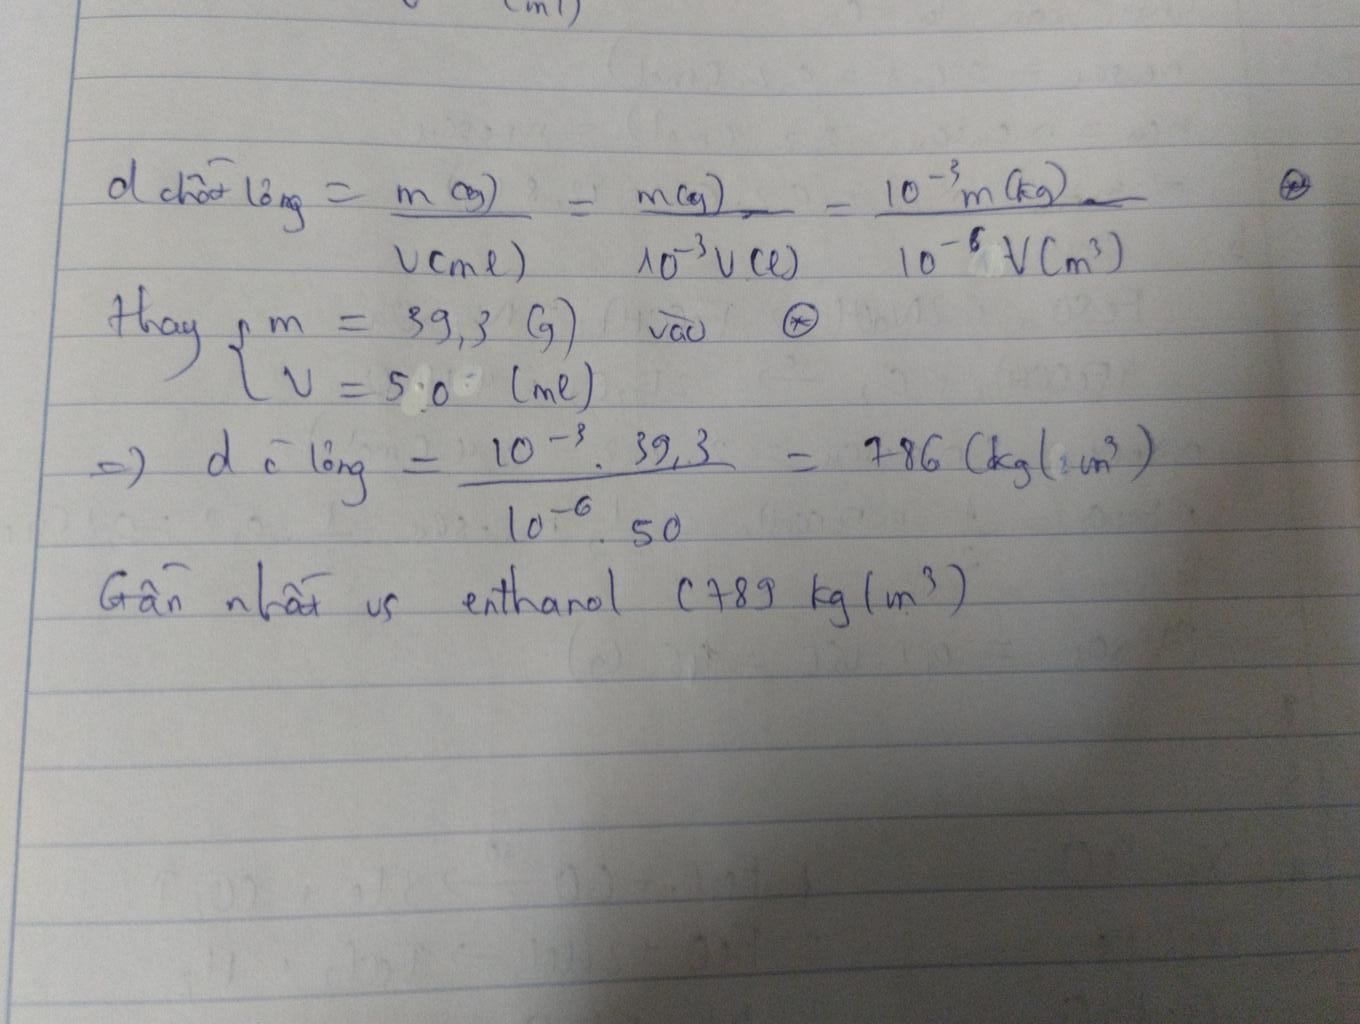 (ml)
d chất lỏng = m (g) / V (ml) = m (g) / 10⁻³ V (l) = 10⁻³ m (kg) / 10⁻⁶ V (m³) ⊛
thay { m = 39,3 (g) vào ⊛
V = 50 (ml)
=> d c lỏng = 10⁻³ . 39,3 / 10⁻⁶ . 50 = 786 (kg/m³)
Gần nhất vs enthanol (789 kg/m³)